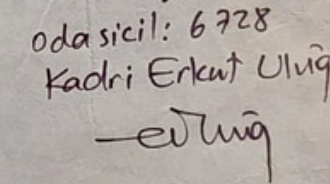 oda sicil: 6728
Kadri Erkut Uluğ